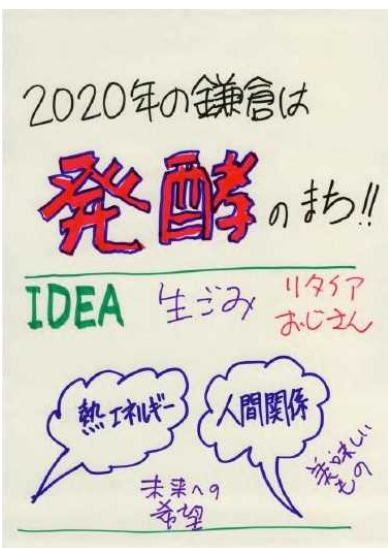 2020年の鎌倉は
発酵のまち!!
IDEA 生ごみ リタイア
おじさん
熱エネルギー 人間関係
未来への
希望
美味しい
もの